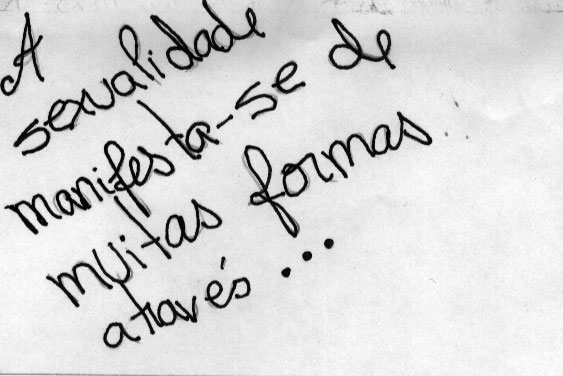 A
sexualidade
manifesta-se de
muitas formas
através...